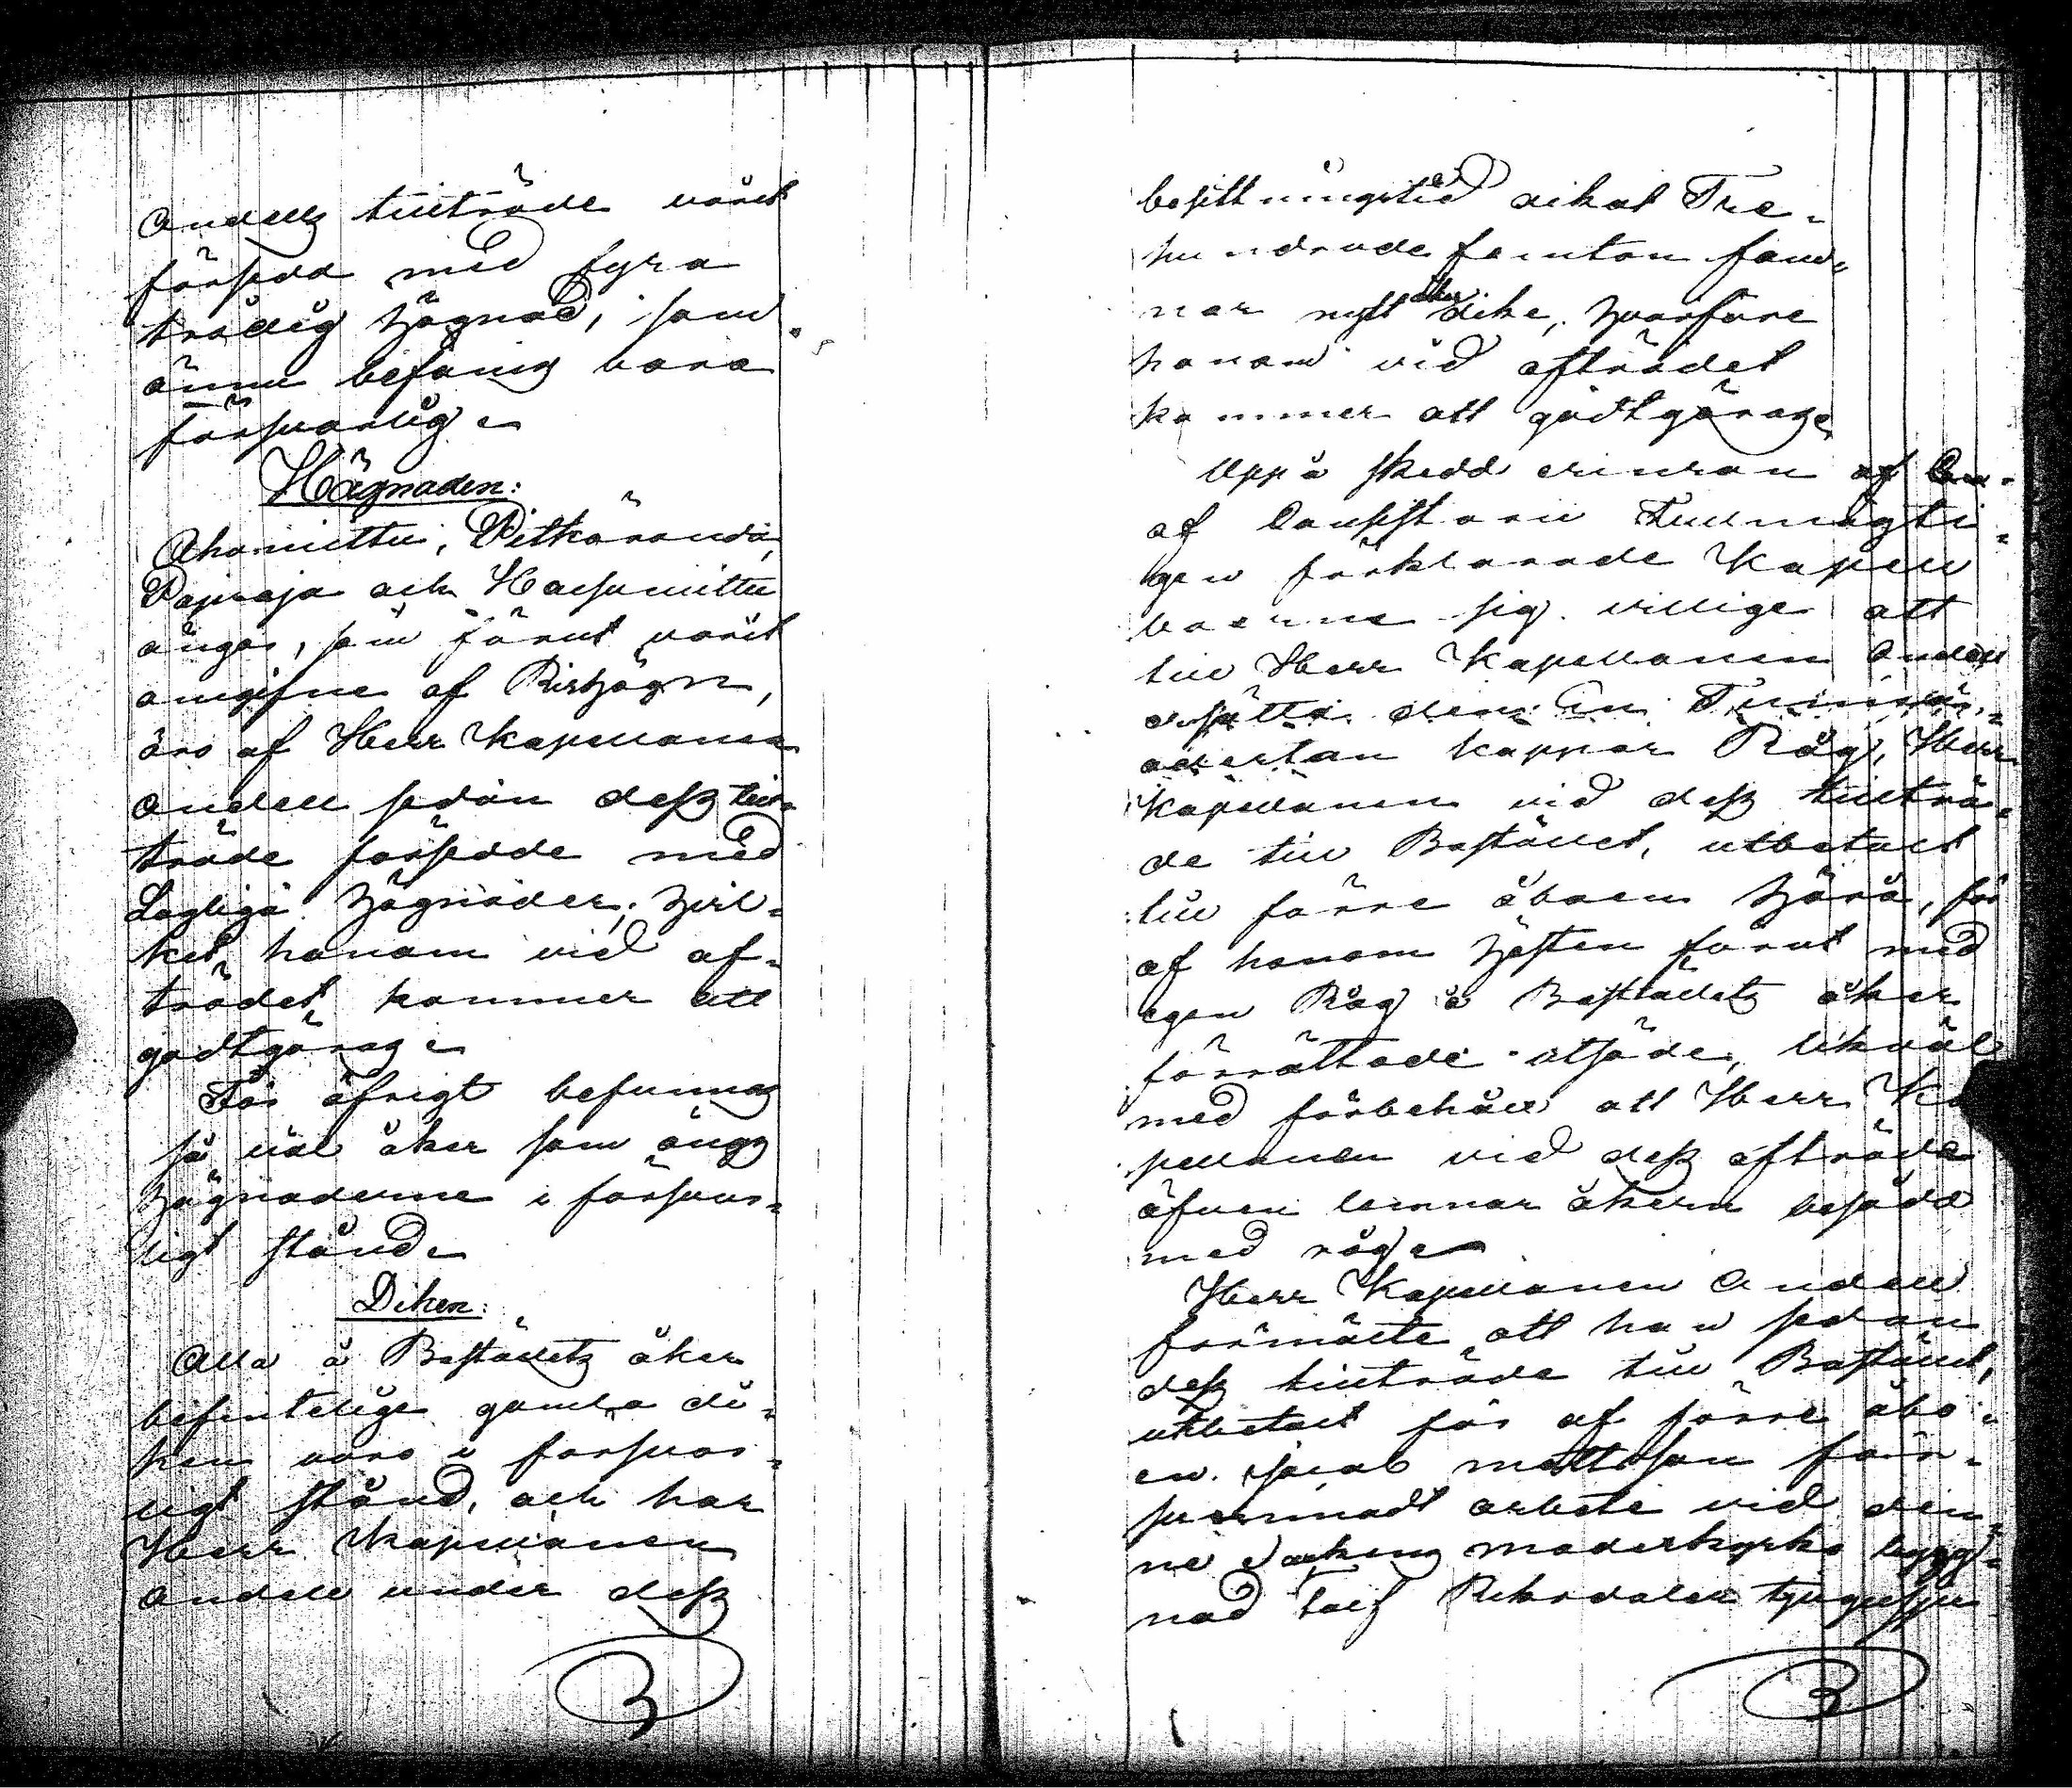 Andells tillträde varit
försedd med fyra
trädig hägnad, som
ännu befanns vara
försvarlig.
Hägnaden:
Ahoniittu, Pitkäranda,
Papinaja och
ängar, som förut varit
omgifne af Rishägn,
äro af Herr Kapellanen
Andell sedan dess till-
träde försedde med
Lagliga hägnader, hvil-
ket honom vid af-
trädet kommer att
godtgöras.
För öfrigt befunnos
så väl åker som ängs
hägnaderne i försvar-
ligt stånd.
Diken:
Alla å Boställets åker
befintelige gamla di-
ken voro i försvar-
ligt stånd, och har
Herr Kapellanen
Andell under dess
besittningstid dikat Tre-
hundrade femton fam-
nar nytt åker dike, hvarföre
honom vid afträdet
kommer att godtgöras.
Uppå skedd erinran af
af Consistorii Fullmägti-
gen förklarade Kapell
boerne sig villige att
till Herr Kapellanen Andell
ersätta den En Tunna
aderton kappar Råg, Herr
Kapellanen vid dess tillträ-
de till Bostället, utbetalt
till förre åboen härå, för
af honom hösten förut med
egen Råg å Boställets åker
förrättade utsäde, likväl
med förbehåll att Herr Ka
pellanen vid dess afträde
äfven lemnar åkern besådd
med råg.
Herr Kapellanen Andell
förmälte att han sedan
dess tillträde till Bostället,
utbetalt för af förre åbo-
en Jacob Mattsson för-
summadt arbete vid den-
ne Sockens moderkyrko bygg-
nad Tolf Riksdaler tjugusju